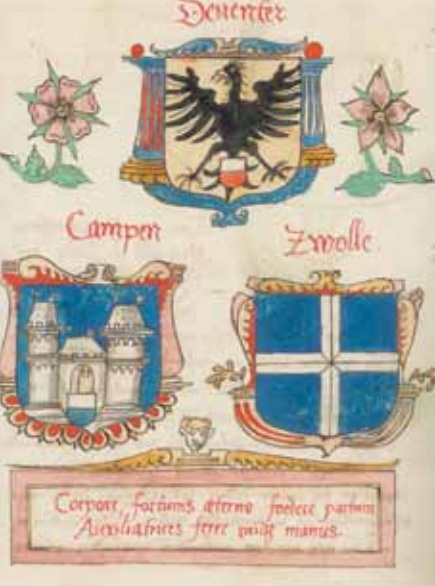 Deventer
Campen
Zwolle.
Corpore, fortunis æterno foedere
Auxiliatrices ferre manus.